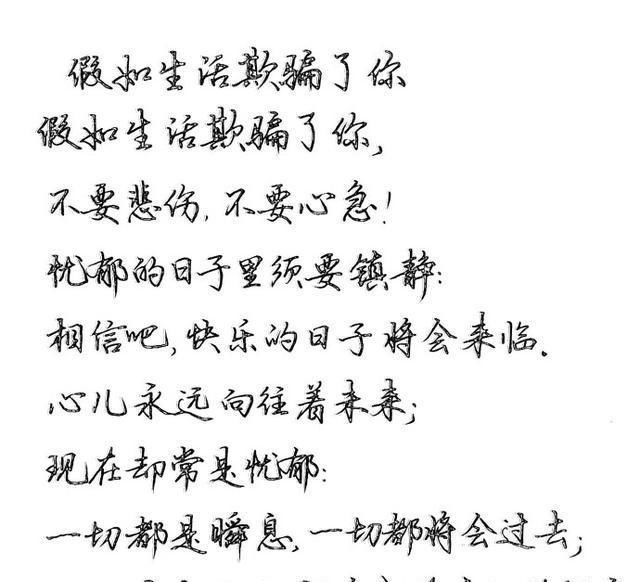 假如生活欺骗了你
假如生活欺骗了你，
不要悲伤，不要心急！
忧郁的日子里须要镇静：
相信吧，快乐的日子将会来临.
心儿永远向往着未来；
现在却常是忧郁：
一切都是瞬息，一切都将会过去；